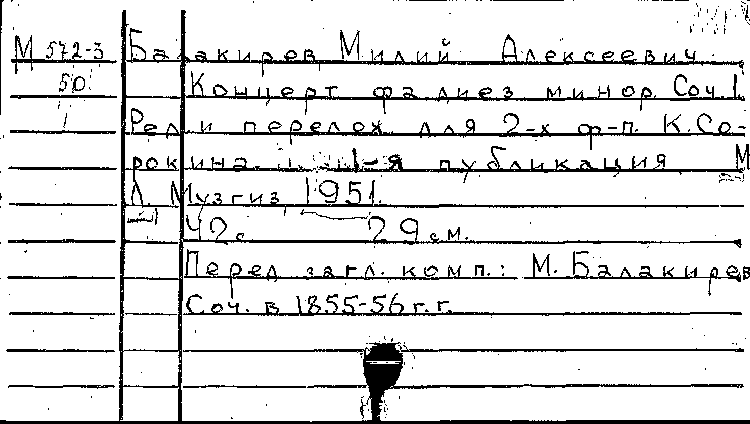 М 572-3 Балакирев Милий Алексеевич.
50 Концерт фа диез минор. Соч. 1.
1 Ред. и перелож. для 2-х ф-п. К. Со-
рокина. 1-я публикация. М
Л. Музгиз, 1951.
42 с. 29 см.
Перед загл. комп.: М. Балакирев
Соч. в 1855-56 г.г.